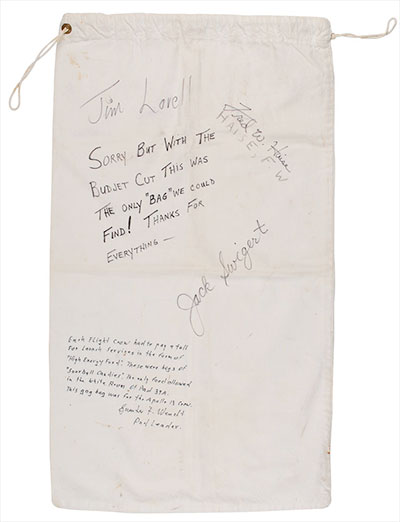 Jim Lovell
Fred W. Haise
HAISE, F W
SORRY BUT WITH THE
BUDJET CUT THIS WAS
THE ONLY "BAG" WE COULD
FIND! THANKS FOR
EVERYTHING —
Jack Swigert
Each Flight Crew had to pay a toll
For Launch Services in the form of
"High Energy Food". These were bags of
"Sourball Candies" the only food allowed
in the White Room of Pad 39A.
This gag bag was for the Apollo 13 crew.
Guenter F. Wendt
Pad Leader.